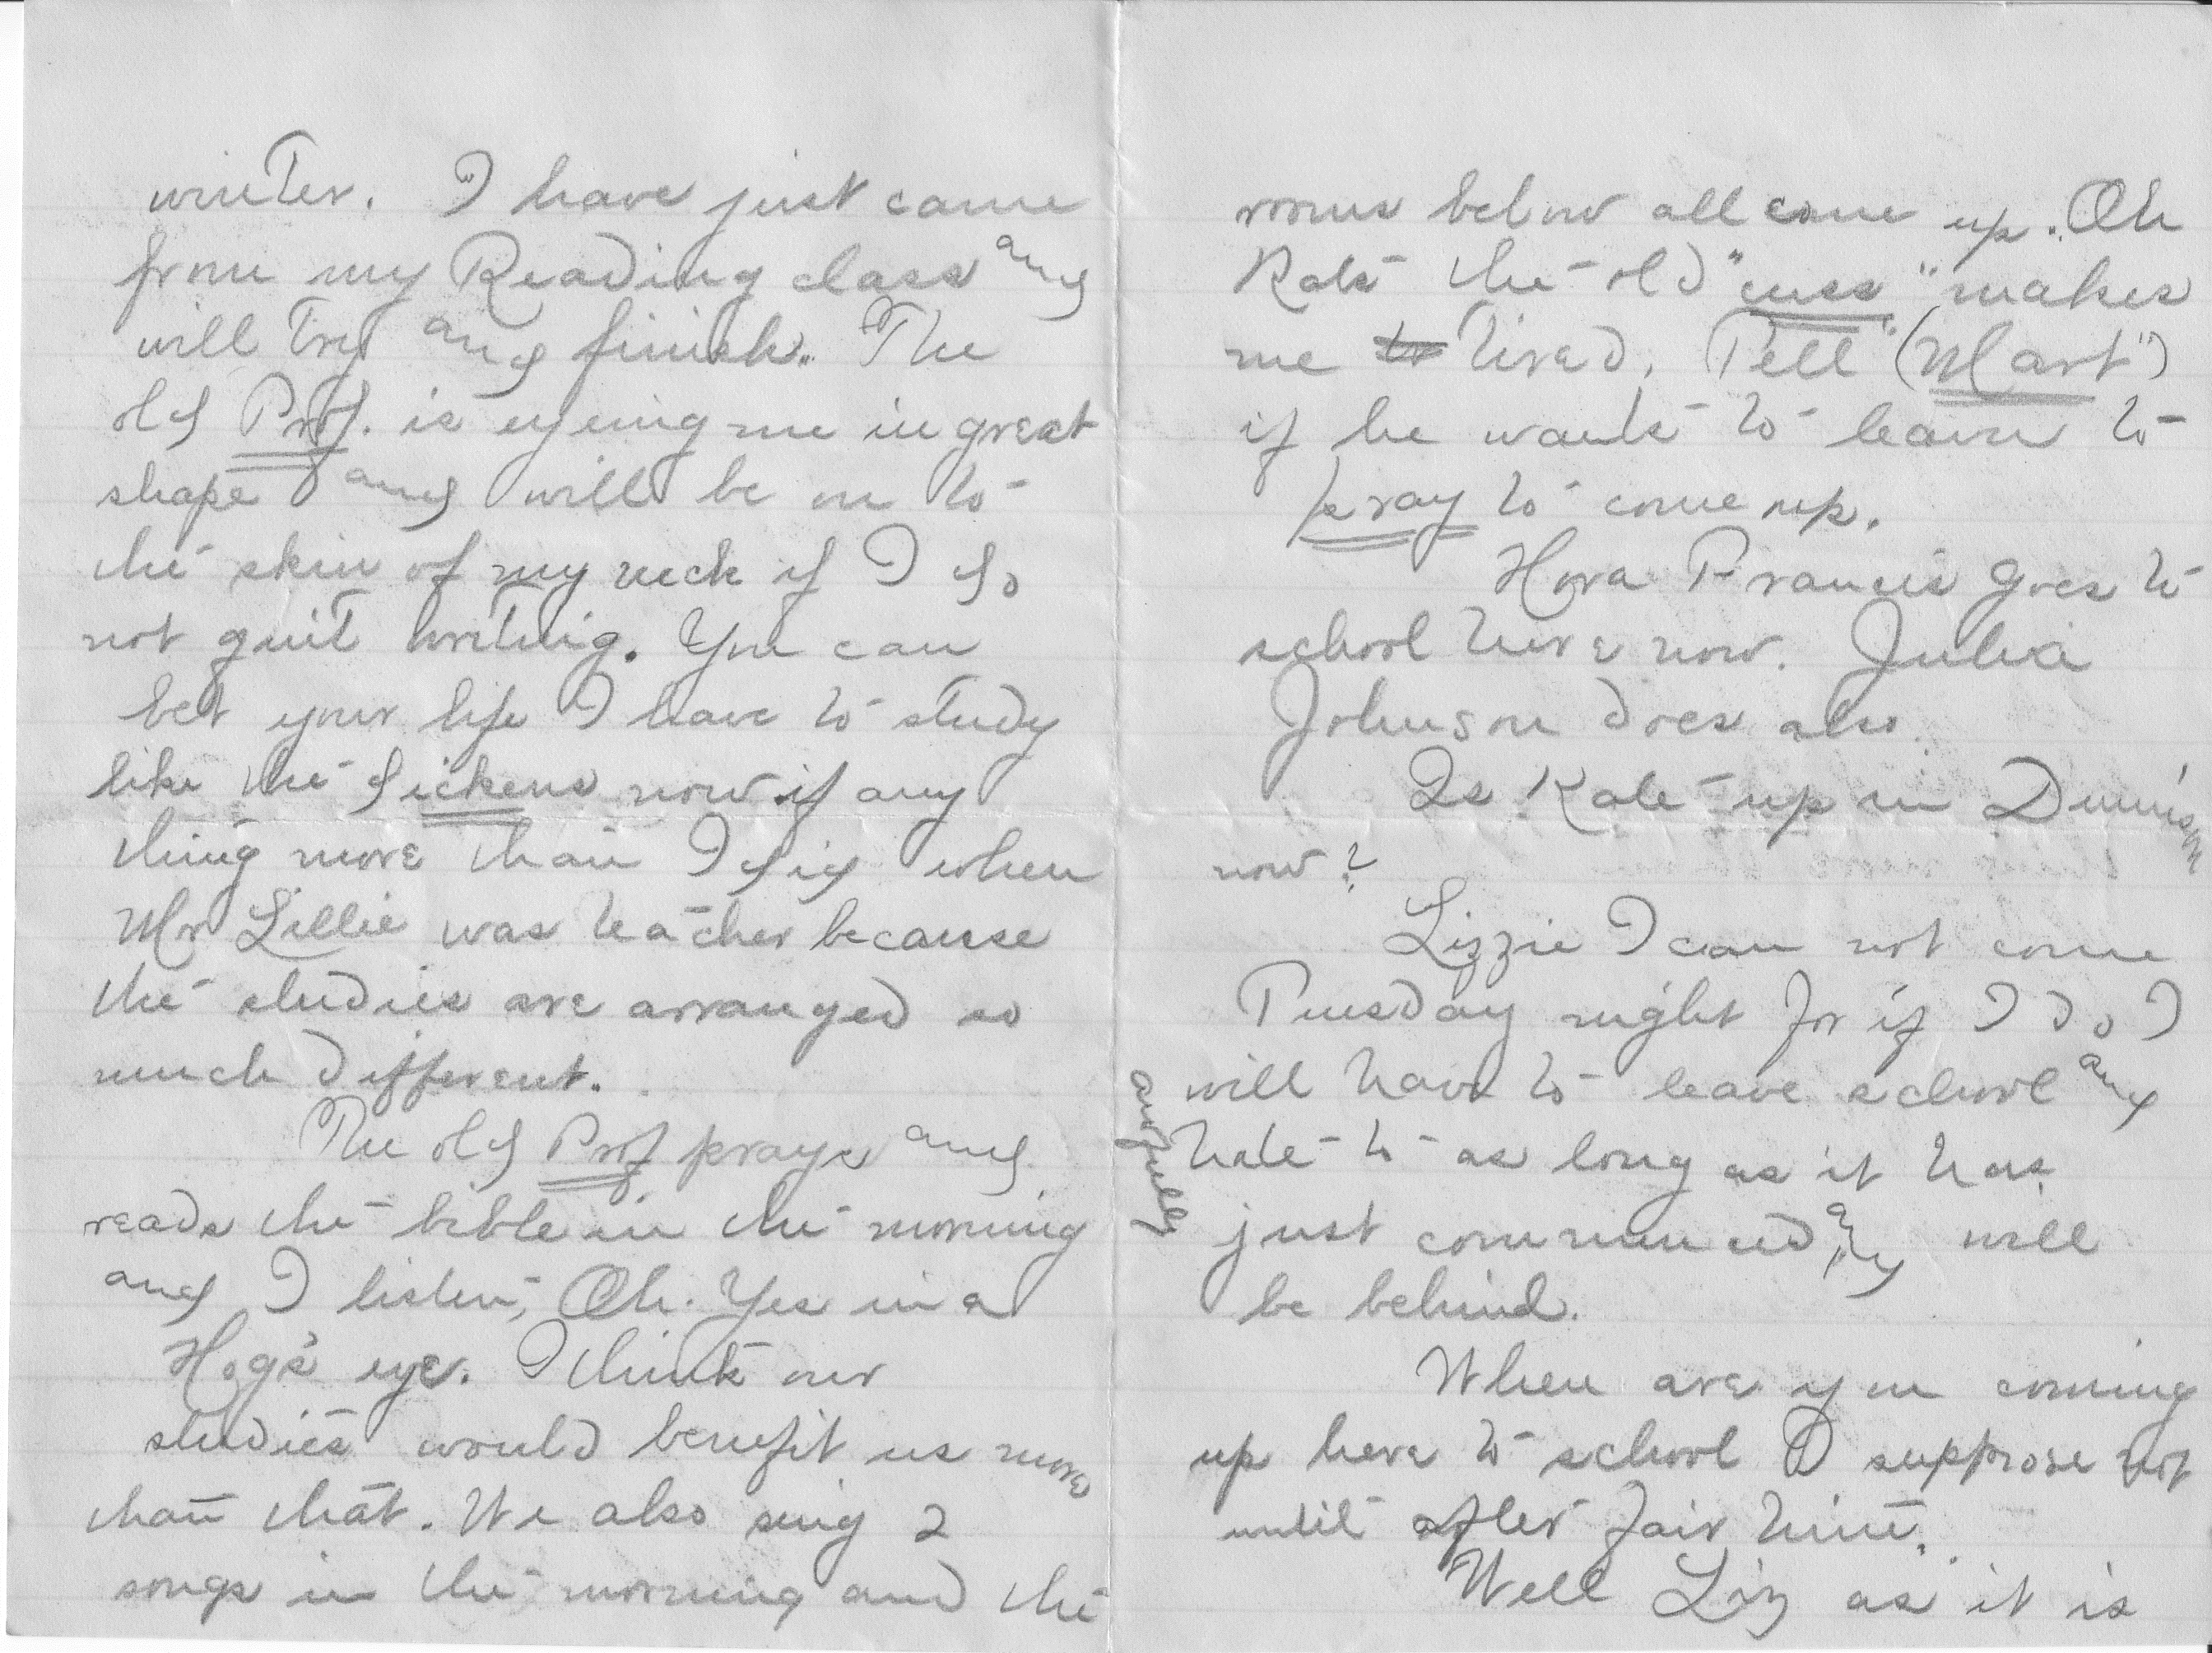 winter. I have just came
from my Reading class and
will try and finish. The
old Prof. is eyeing me in great
shape and will be on to
the skin of my neck if I do
not quit writing. You can
bet your life I have to study
like the dickens now if any
thing more than I did when
Mr Lillie was teacher because
the studies are arranged so
much different.
The old Prof prays and
reads the bible in the morning
and I listen, Oh. Yes in a
Hog's eye. I think our
studies would benefit us more
than that. We also sing 2
songs in the morning and the
rooms below all come up. Oh
Rats the old "cuss" makes
me to tired. Tell "(Mart")
if he wants to learn to
pray to come up.
Francis goes to
school here now. Julia
Johnson does also.
Is Kate up in Dennison
now?
Lizzie I can not come
Tuesday night for if I do I
will have to leave school and
awfully
hate to as long as it has
just commenced and will
be behind.
When are you coming
up here to school I suppose not
until after fair time.
Well Liz as it is